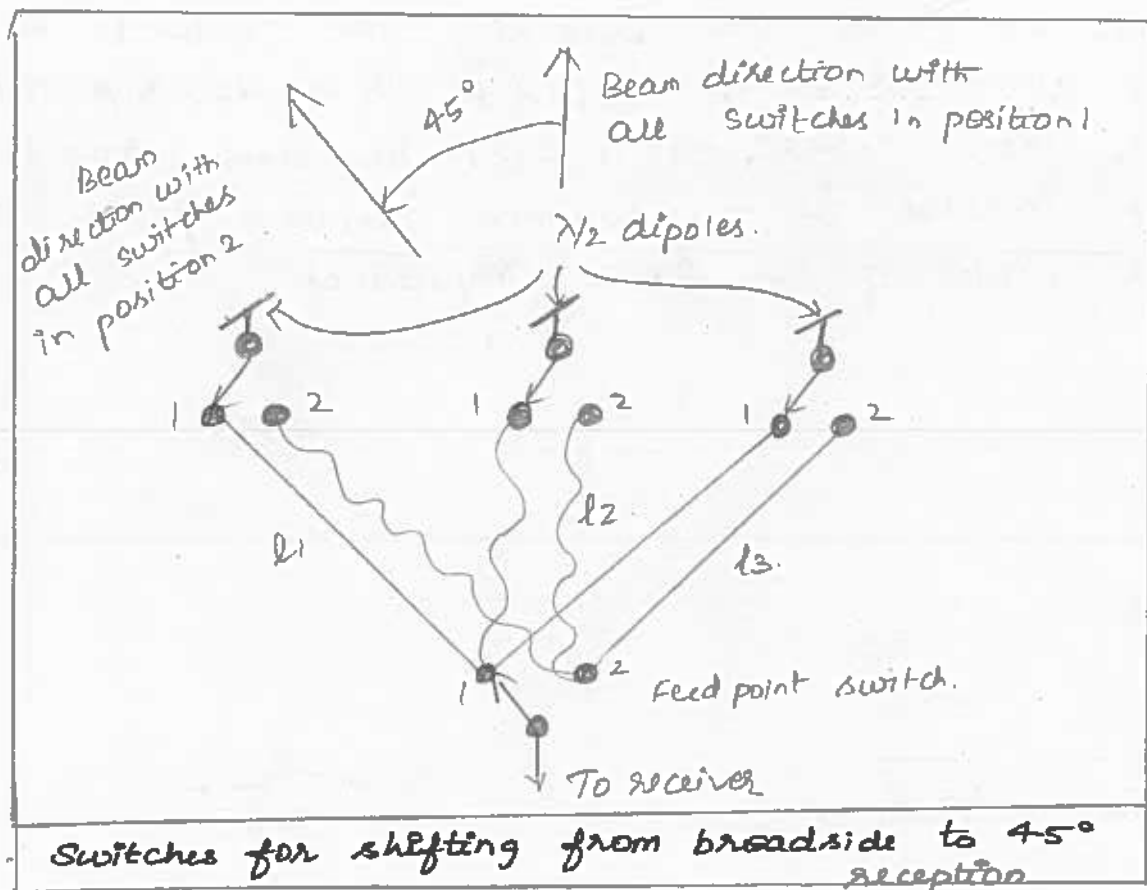 45°
Beam direction with
all switches in position 1.
Beam
direction with
all switches
in position 2.
λ/2 dipoles.
1 2 1 2 1 2
l1
l2
l3.
1 2
Feed point switch.
To receiver
Switches for shifting from broadside to 45°
reception